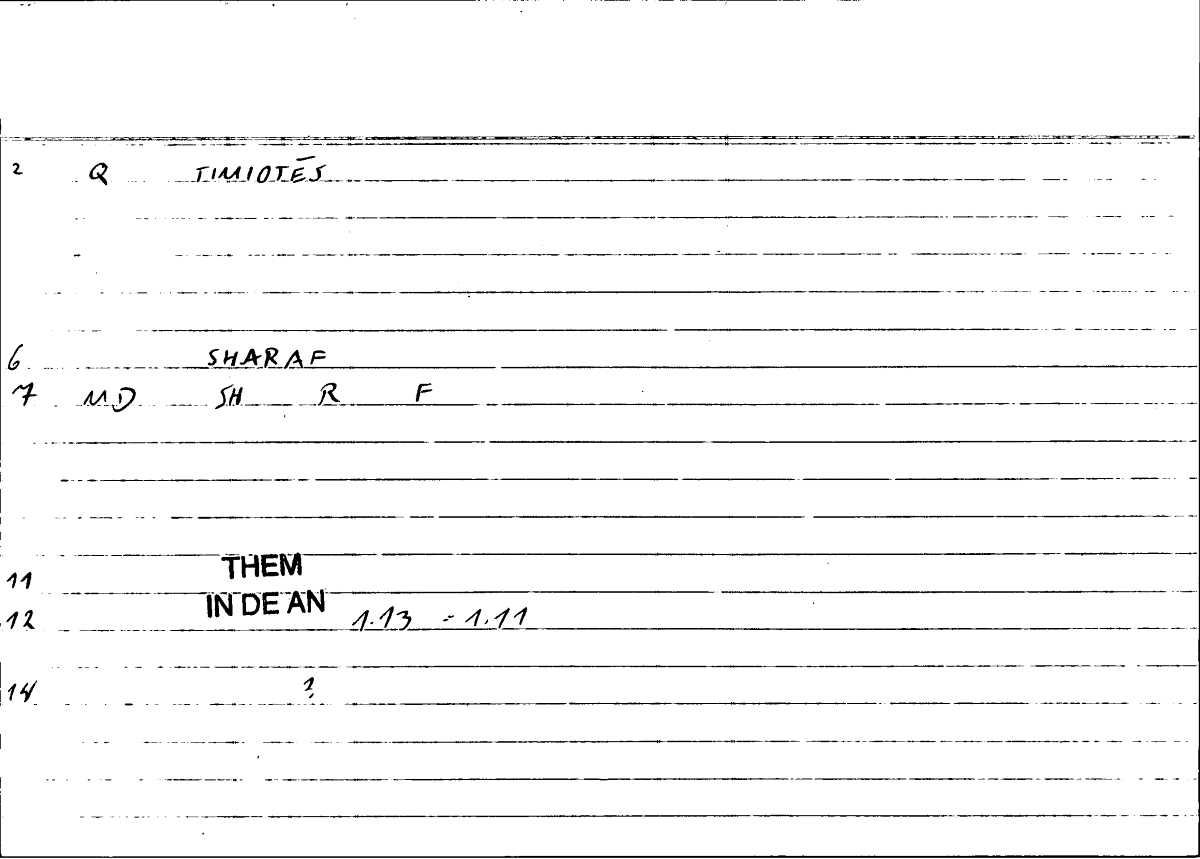 2 Q TIMIOTĒS
6 SHARAF
7 MD SH R F
11 THEM
12 IN DE AN 1.13 - 1.11
14 ?